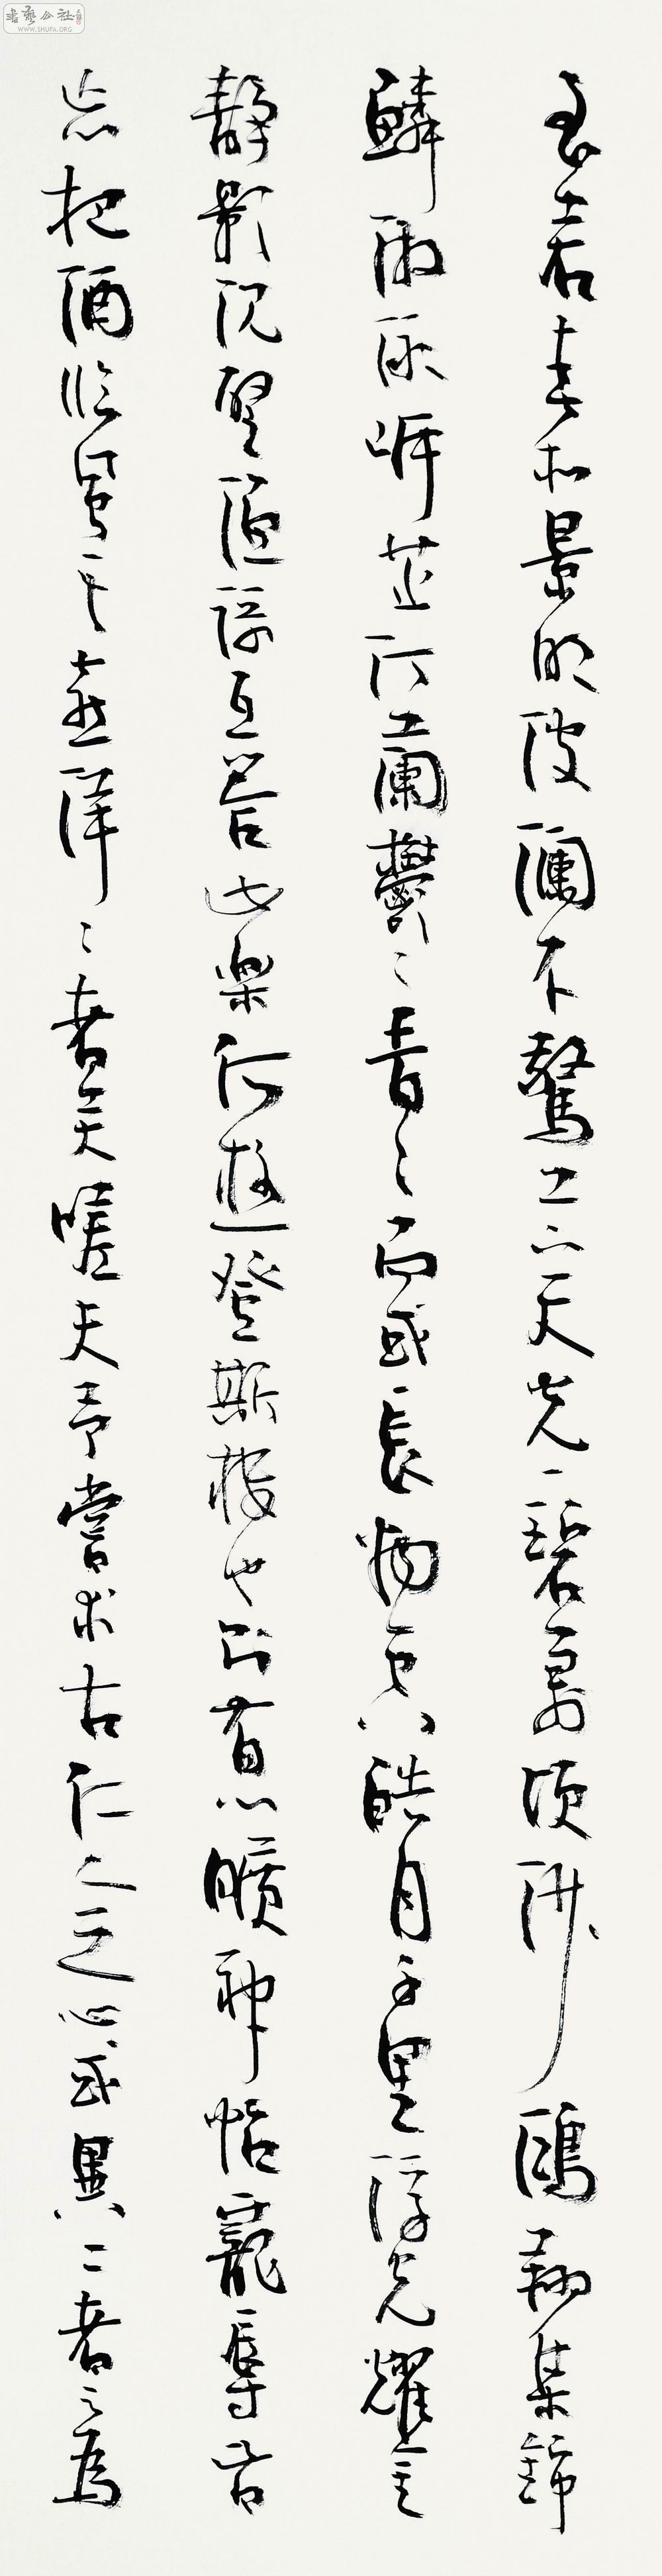 書藝公社
WWW.SHUFA.ORG
至若春和景明波瀾不驚上下天光一碧萬頃沙鷗翔集錦
鱗游泳岸芷汀蘭鬱々青々而或長煙一空皓月千里浮光耀金
靜影沉璧漁歌互答此樂何極登斯樓也則有心曠神怡寵辱皆
忘把酒臨風其喜洋々者矣嗟夫予嘗求古仁人之心或異二者之為